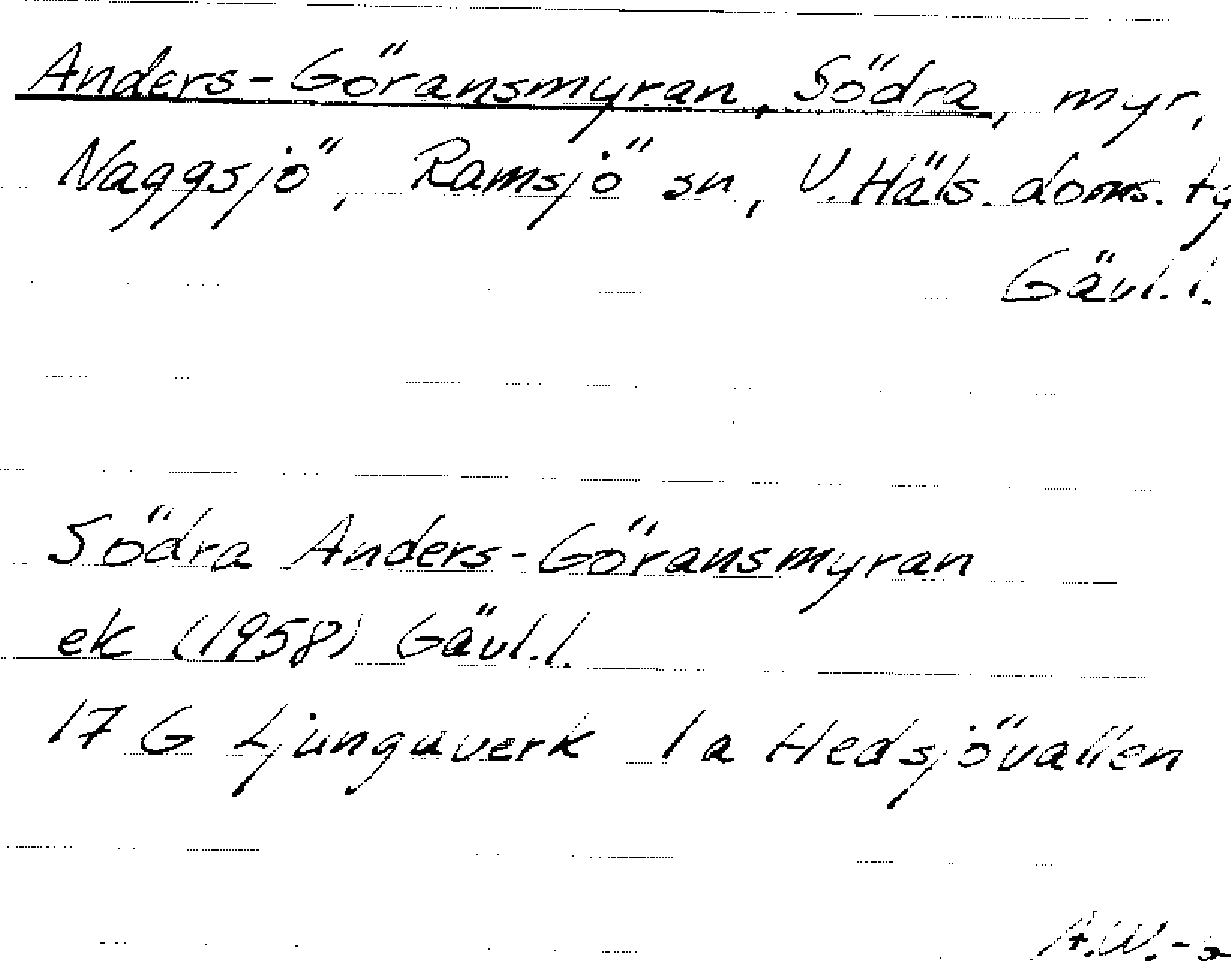 Anders-Göransmyran, Södra, myr,
Naggsjö, Ramsjö sn, V.Häls. doms. tg
Gävl.l.
Södra Anders-Göransmyran
ek (1958) Gävl.l.
17 G Ljungaverk 1a Hedsjövallen